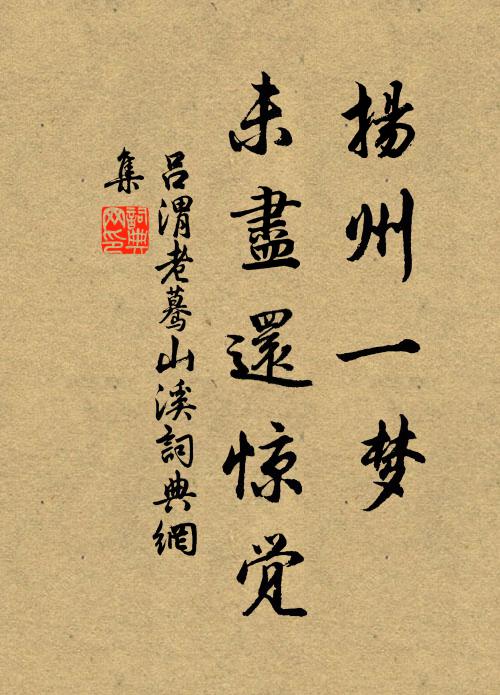 揚州一梦
未盡還惊觉
吕渭老蓦山溪詞典網
集
詞典网印